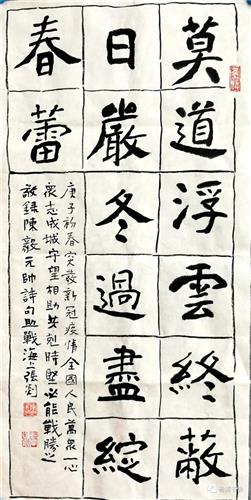 莫道浮雲終蔽
日嚴冬過盡綻
春蕾
庚子初春突發新冠疫情全國人民萬衆一心
衆志成城守望相助共剋時堅必能戰勝之
敬錄陳毅元帥詩句助戰海上張